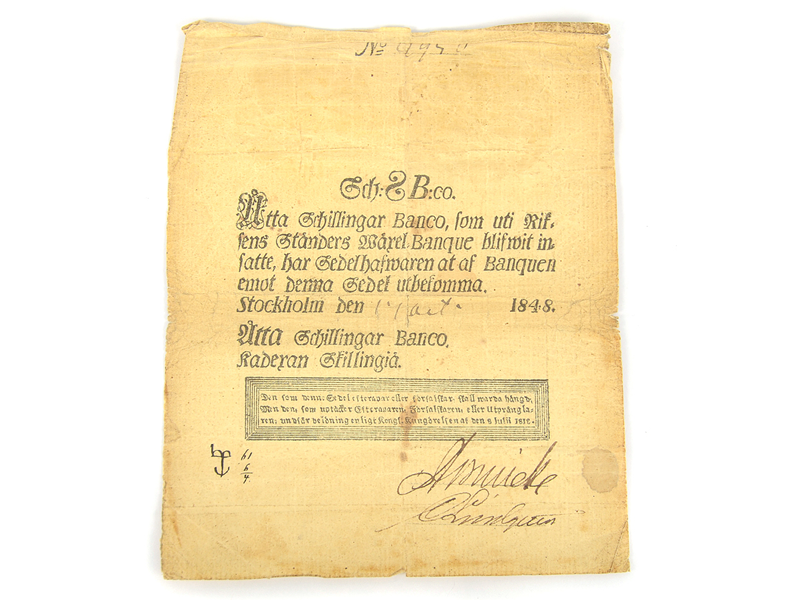 No
Sch: 8 B:co.
Åtta Schillingar Banco, som uti Rik-
sens Ständers Wäxel-Banque blifwit in-
satte, har Sedelhafwaren at af Banquen
emot denna Sedel utbekomma.
Stockholm den 1848.
Åtta Schillingar Banco.
Kadexan Skillingiä.
Den som denna Sedel efterapar eller förfalskar, skall warda hängd,
Men den, som uptäcker Efteraparen, Förfalskaren, eller Utprångla-
ren; undfår belöning enligt Kongl. Kungörelsen af den 8 Julii 1812.
61
6
4.